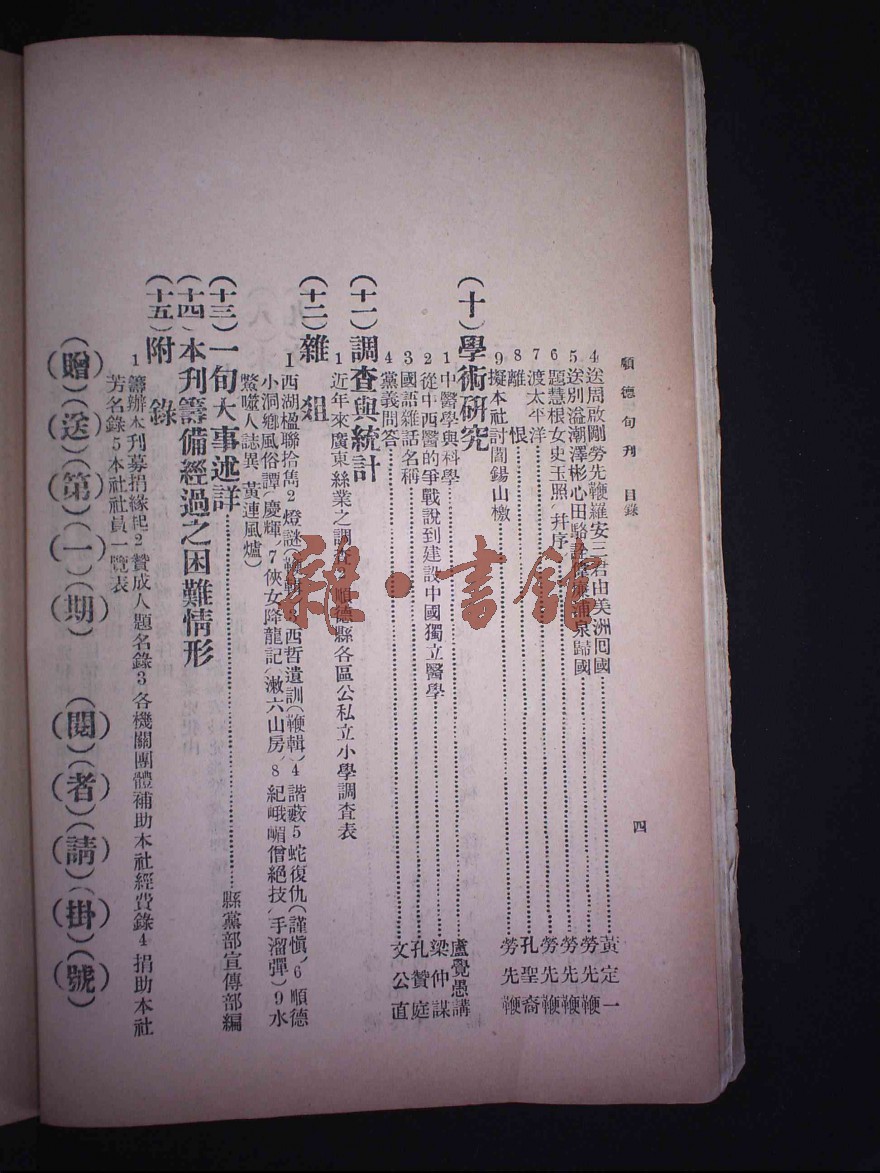 順德旬刊 目錄
四
4送周啟剛勞先鞭羅安三君由美洲囘國……黃定一
5送別溢潮澤彬心田駱浦泉歸國……勞先鞭
6題慧根女史玉照(幷序)……勞先鞭
7渡太平洋……勞先鞭
8離恨……孔聖裔
9擬本社討閻錫山檄……勞先鞭
(十)學術研究
1中醫學與科學……盧覺愚講
2從中西醫的爭戰說到建設中國獨立醫學……梁仲謀
3國語雜話名稱……孔贊庭
4黨義問答……文公直
(十一)調查與統計
1近年來廣東絲業之調查2順德縣各區公私立小學調查表
(十二)雜俎
1西湖楹聯拾雋2燈謎(鞭輯)3西哲遺訓(鞭輯)4諧藪5蛇復仇(謹愼)6順德
小洞鄉風俗譚(慶輝)7俠女降龍記(漱六山房)8紀峨嵋僧絕技(手溜彈)9水
鱉噬人誌異(黃連風爐)
(十三)一旬大事述詳……縣黨部宣傳部編
(十四)本刋籌備經過之困難情形
(十五)附錄
1籌辦本刋募捐緣起2贊成人題名錄3各機關團體補助本社經費錄4捐助本社
芳名錄5本社社員一覽表
(贈)(送)(第)(一)(期) (閱)(者)(請)(掛)(號)
雜·書館